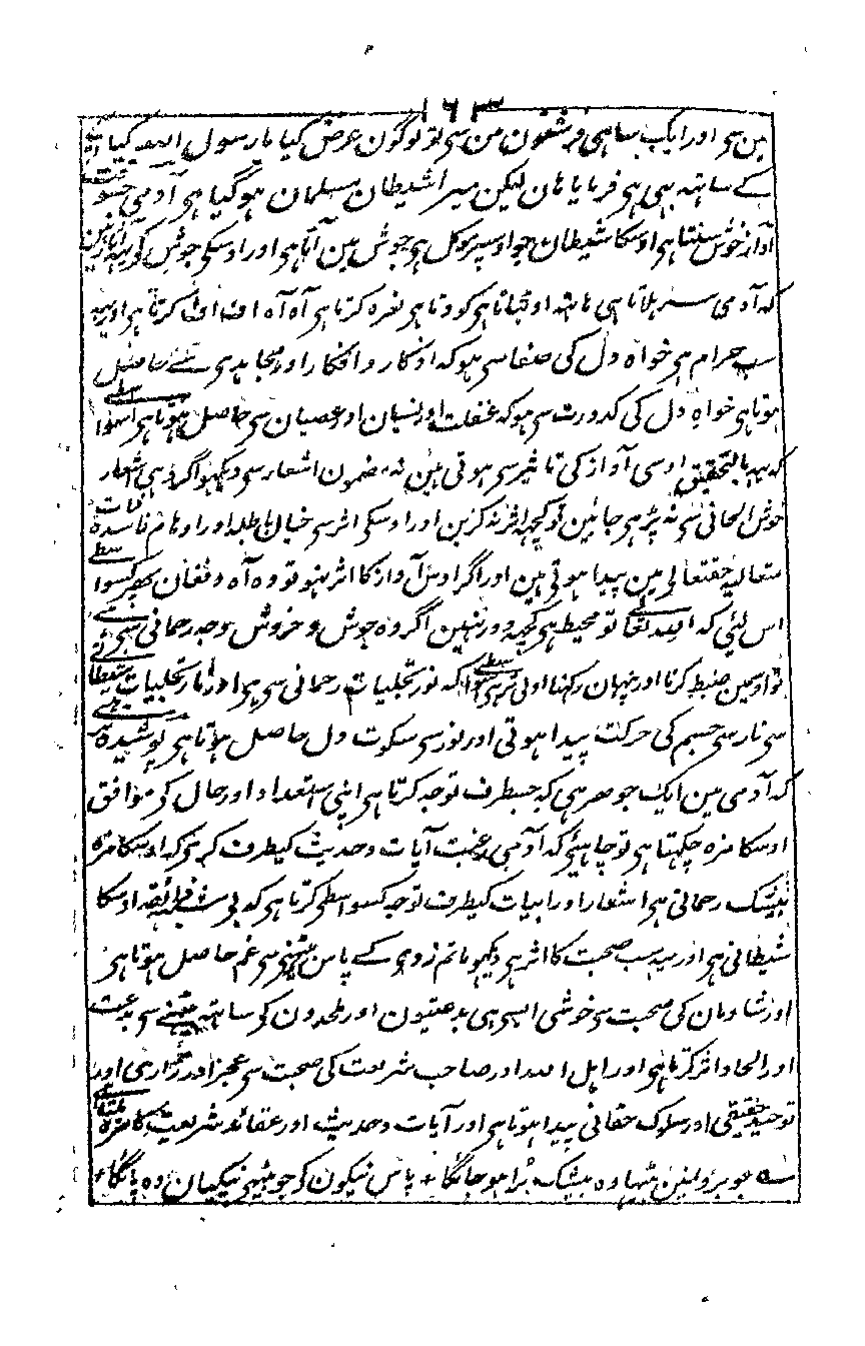 ۱۶۳
مین سی اور ایک ساتھی فرشتون من سی تو لوگون عرض کیا یا رسول اللہ کیا آپ
کے ساتہہ بہی ہی فرمایا ہان لیکن میرا شیطان مسلمان ہوگیا ہی آدمی جسوقت
آواز خوش سنتا ہی اوسکا شیطان جو اوسپر موکل ہی جوش مین آتا ہی اور اوسکی جوش کو یہہ
کہ آدمی سر ہلاتا ہی ہاتہہ اوٹہاتا ہی کودتا ہی نعرہ کرتا ہی آہ آہ اف اف کرتا ہی اور یہہ
سب حرام ہی خواہ دل کی صفا سی ہو کہ اذکار و افکار اور مجاہدی سی حاصل
ہوتا ہی خواہ دل کی کدورت سی ہو کہ غفلت اور نسیان اور عصیان سی حاصل ہوتا ہی اسواسطی
کہ یہہ بالتحقیق اوسی آواز کی تاثیر سی ہوتی ہین نہ مضمون اشعار سی دیکہو اگر وہی اشعار
خوش الحانی سی نہ پڑہی جائین تو کچہہ اثر نہ کرین اور اوسکی اثر سی خیال باطلہ اور اوہام فاسدہ
متعالیہ حقتعالی مین پیدا ہوتی ہین اور اگر اوس آواز کا اثر نہو تو وہ آہ و فغان پہر کسواسطی
اس لئی کہ اللہ تعالی تو محیط ہی کچہہ دور نہین اگر وہ جوش و خروش وجد رحمانی سی
تو اوسمین ضبط کرنا اور پنہان رکہنا اولی ہی اسواسطی کہ نور تجلیات رحمانی سی ہی اور نار تجلیات شیطانی
سی نار سی جسم کی حرکت پیدا ہوتی اور نور سی سکوت دل حاصل ہوتا ہی پوشیدہ
کہ آدمی مین ایک جوہر ہی کہ جسطرف توجہ کرتا ہی اپنی استعداد اور حال کی موافق
اوسکا مزہ چکہتا ہی تو چاہئی کہ آدمی رغبت آیات و حدیث کیطرف کری کہ اوسکا مزہ
بیشک رحمانی ہی اشعار اور ابیات کیطرف توجہ کسواسطی کرتا ہی کہ بی شک ذائقہ اوسکا
شیطانی ہی اور یہہ سب صحبت کا اثر ہی دیکہو ماتم زدون کے پاس بیٹہنی سی غم حاصل ہوتا ہی
اور شادمان کی صحبت سی خوشی ایسی ہی بدعتیون اور ملحدون کی ساتہہ بیٹہنے سی بدعت
اور الحاد اثر کرتا ہی اور اہل اللہ اور صاحب شریعت کی صحبت سی عجز اور زاری اور
توحید حقیقی اور سلوک حقانی پیدا ہوتا ہی اور آیات و حدیث اور عقائد شریعت کا مزہ
جو برون مین بیٹہا وہ بیشک برا ہو جائگا ٭ پاس نیکون کی جو بیٹہی نیکیان وہ پائگا ٭